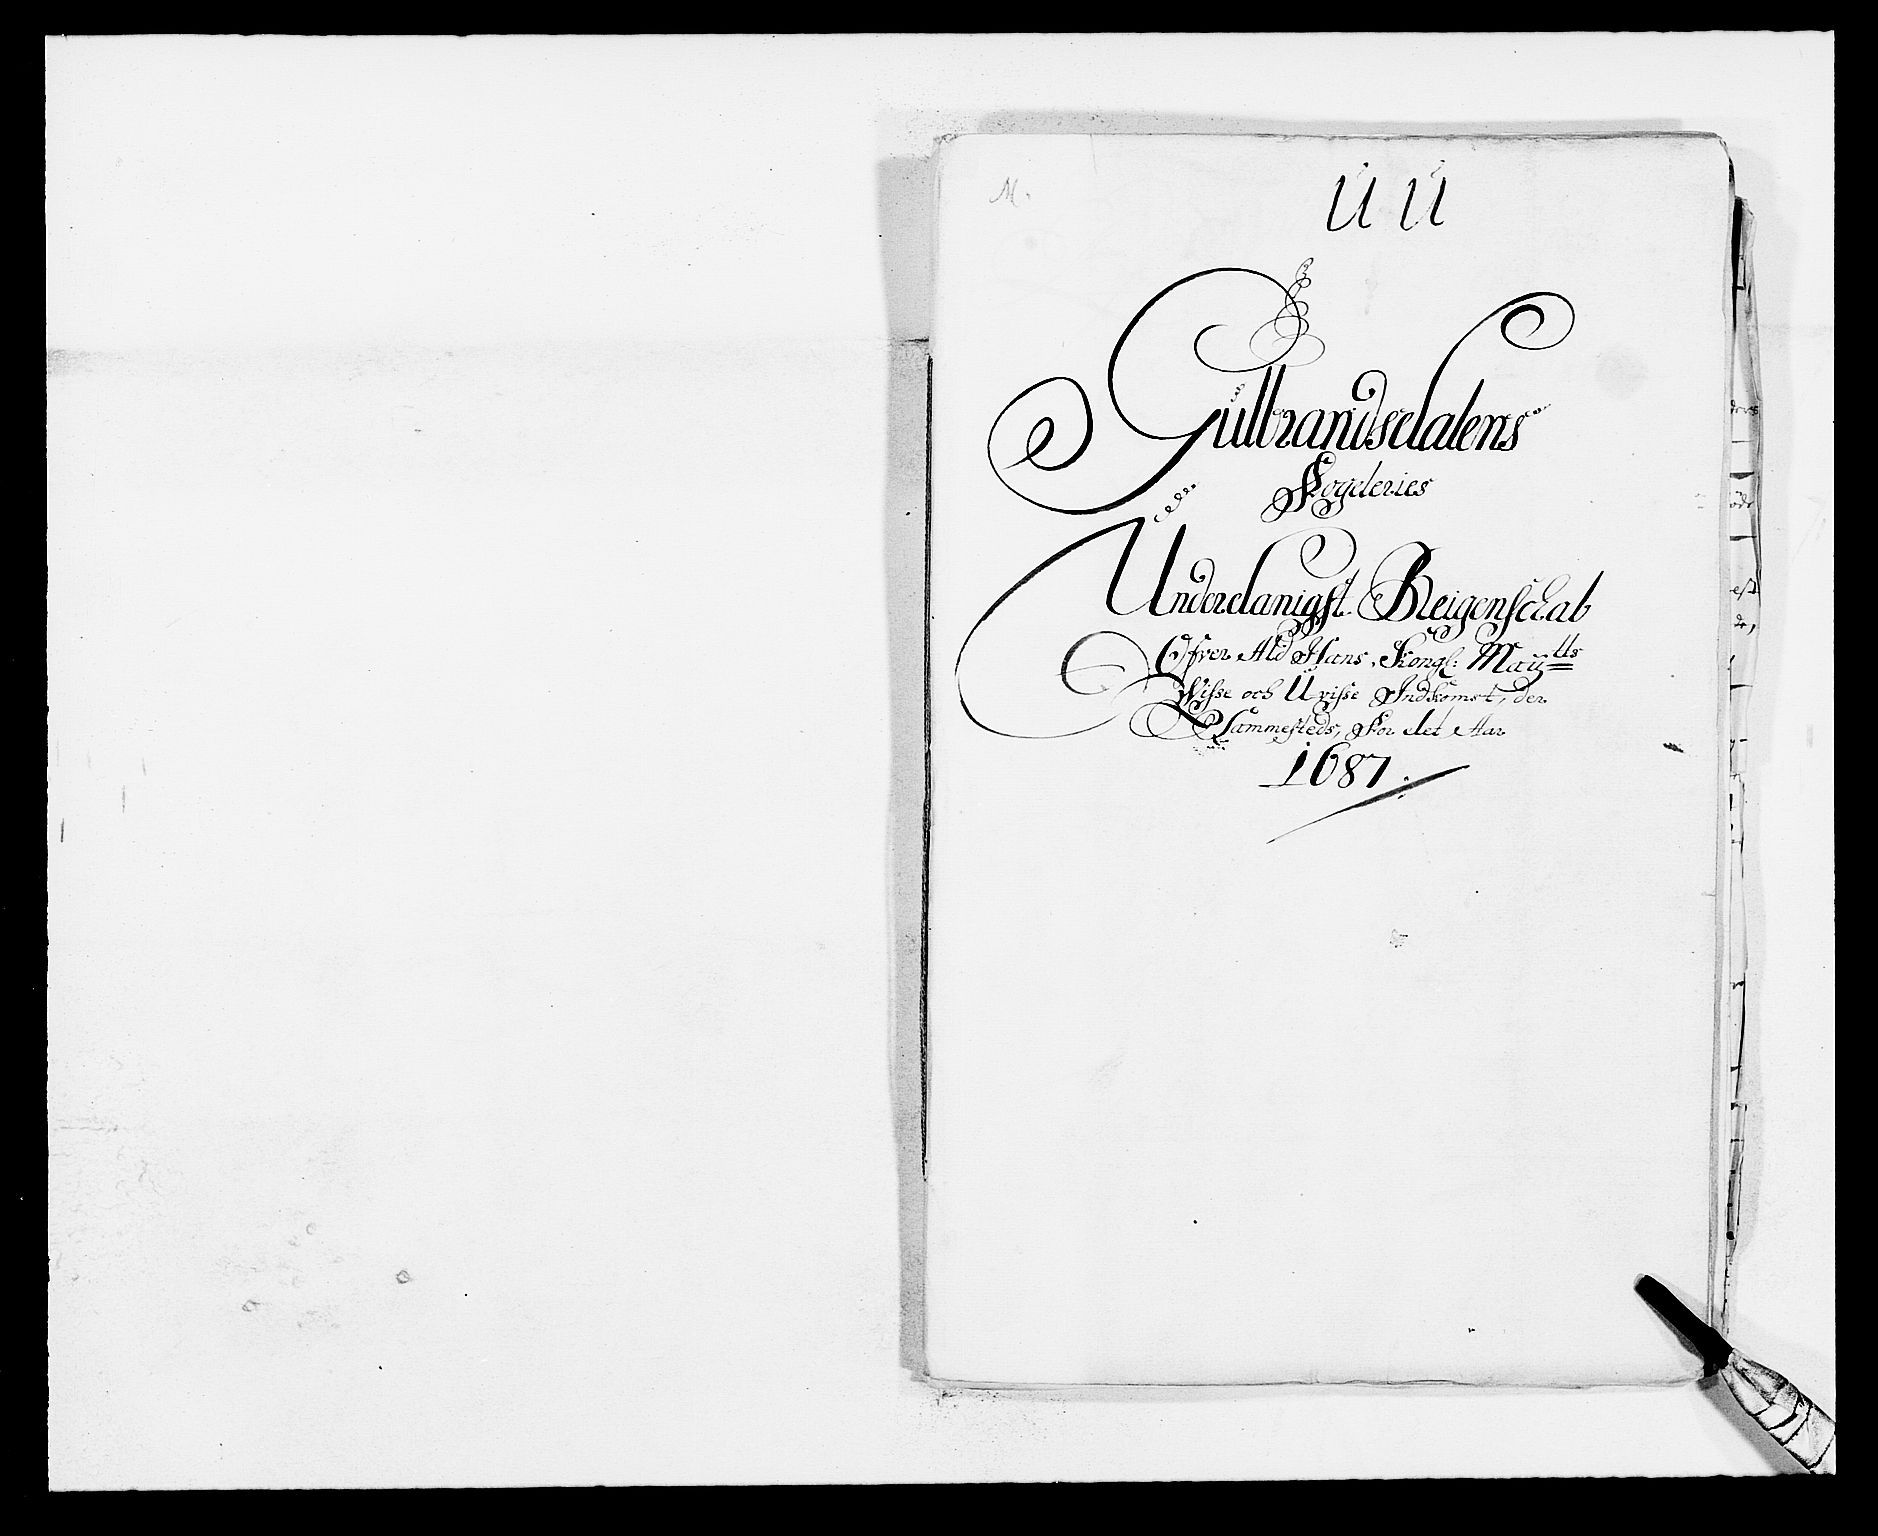 M.
Ü Ü
Gülbrandsdalens
Fogderies
Ünderdanigst Reigenschab
Ofver Ald Hans Kongl: Maÿtts
Wisse och Üvisse Indkomst, der
Sammesteds, For det Aar
1687